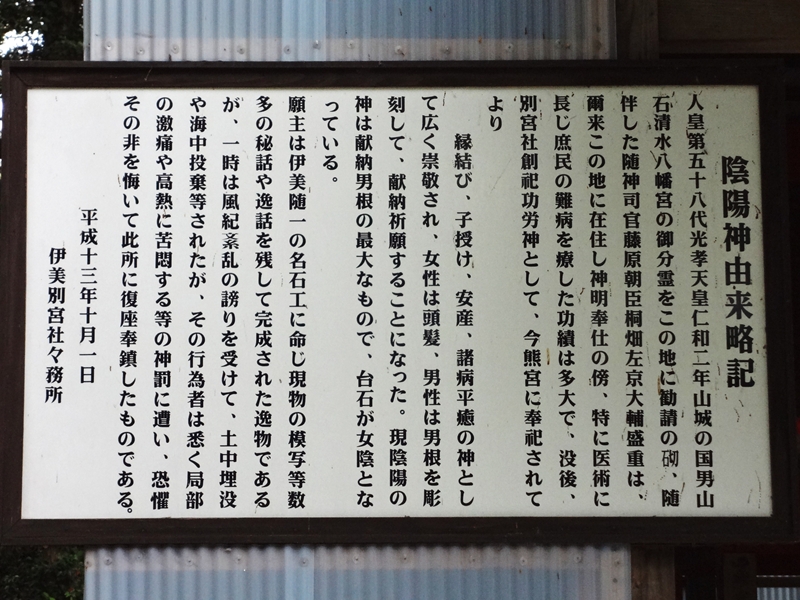 陰陽神由来略記
人皇第五十八代光孝天皇仁和二年山城の国男山
石清水八幡宮の御分霊をこの地に勧請の砌、随
伴した随神司官藤原朝臣桐畑左京大輔盛重は、
爾来この地に在住し神明奉仕の傍、特に医術に
長じ庶民の難病を療した功績は多大で、没後、
別宮社創祀功労神として、今熊宮に奉祀されて
より
縁結び、子授け、安産、諸病平癒の神とし
て広く崇敬され、女性は頭髮、男性は男根を彫
刻して、献納祈願することになった。現陰陽の
神は献納男根の最大なもので、台石が女陰とな
っている。
願主は伊美随一の名石工に命じ現物の模写等数
多の秘話や逸話を残して完成された逸物である
が、一時は風紀紊乱の謗りを受けて、土中埋没
や海中投棄等されたが、その行為者は悉く局部
の激痛や高熱に苦悶する等の神罰に遭い、恐懼
その非を悔いて此所に復座奉鎮したものである。
平成十三年十月一日
伊美別宮社々務所